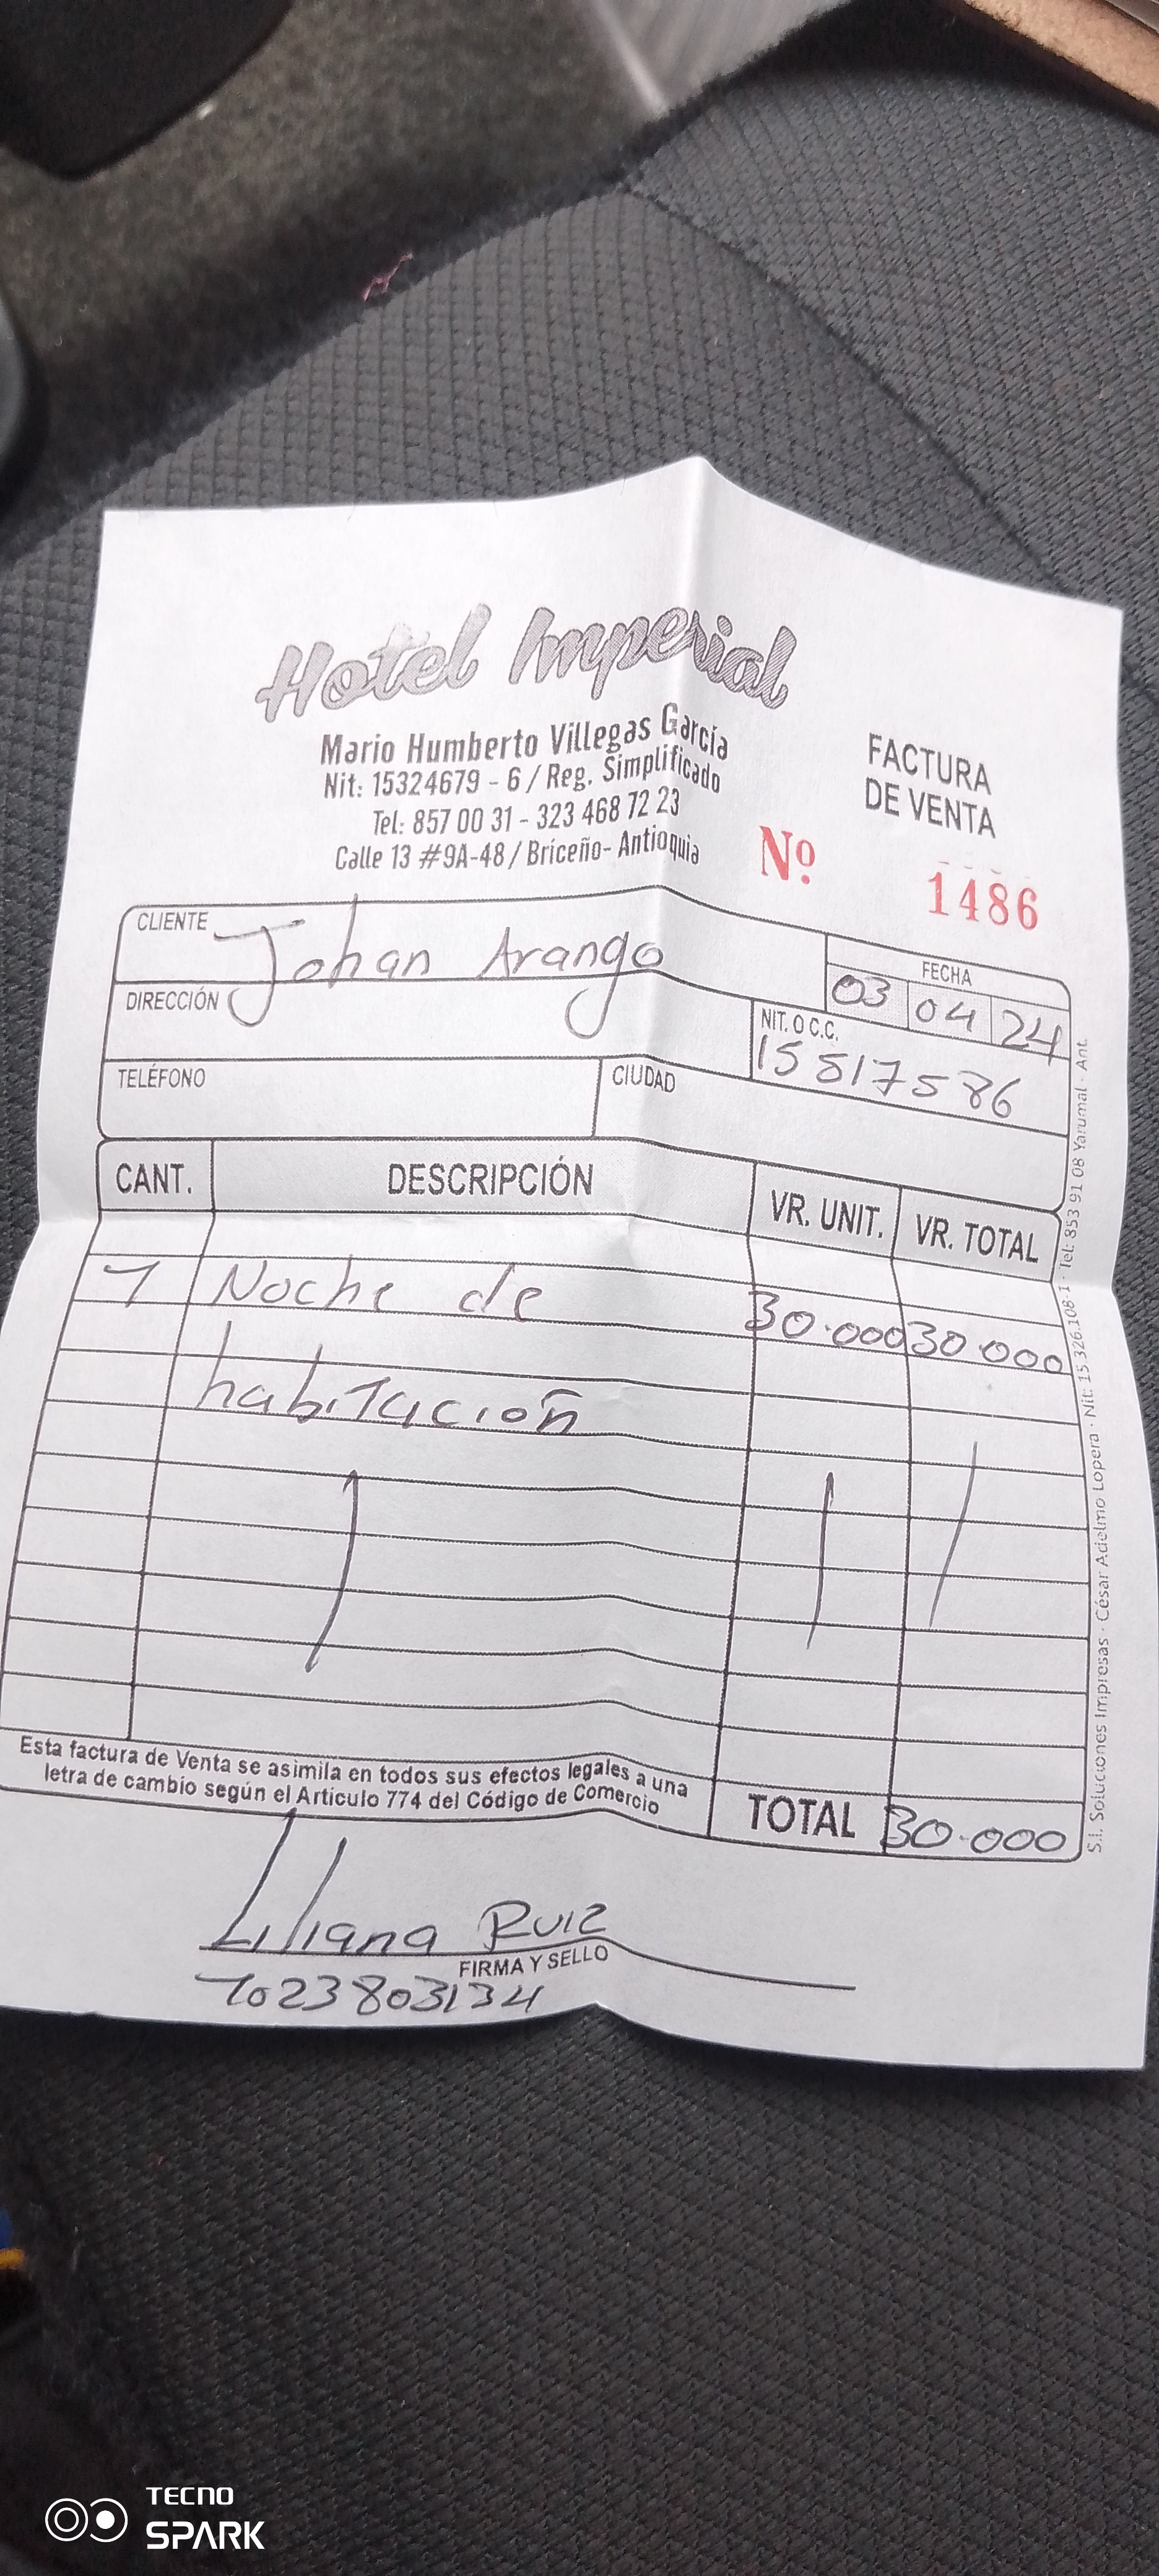 Hotel Imperial
Mario Humberto Villegas García
Nit: 15324679 - 6 / Reg. Simplificado
Tel: 857 00 31 - 323 468 72 23
Calle 13 #9A-48 / Briceño- Antioquia
FACTURA
DE VENTA
Nº 1486
CLIENTE Johan Arango
FECHA
03 04 24
DIRECCIÓN
NIT. O C.C.
15517586
TELÉFONO
CIUDAD
CANT. DESCRIPCIÓN VR. UNIT. VR. TOTAL
1 Noche de 30.000 30.000
habitación
Esta factura de Venta se asimila en todos sus efectos legales a una
letra de cambio según el Artículo 774 del Código de Comercio
TOTAL 30.000
Liliana Ruiz
FIRMA Y SELLO
1023803134
S.I. Soluciones Impresas · César Adelmo Lopera · Nit: 15.326.108-1 · Tel: 853 91 08 Yarumal - Ant.
TECNO
SPARK